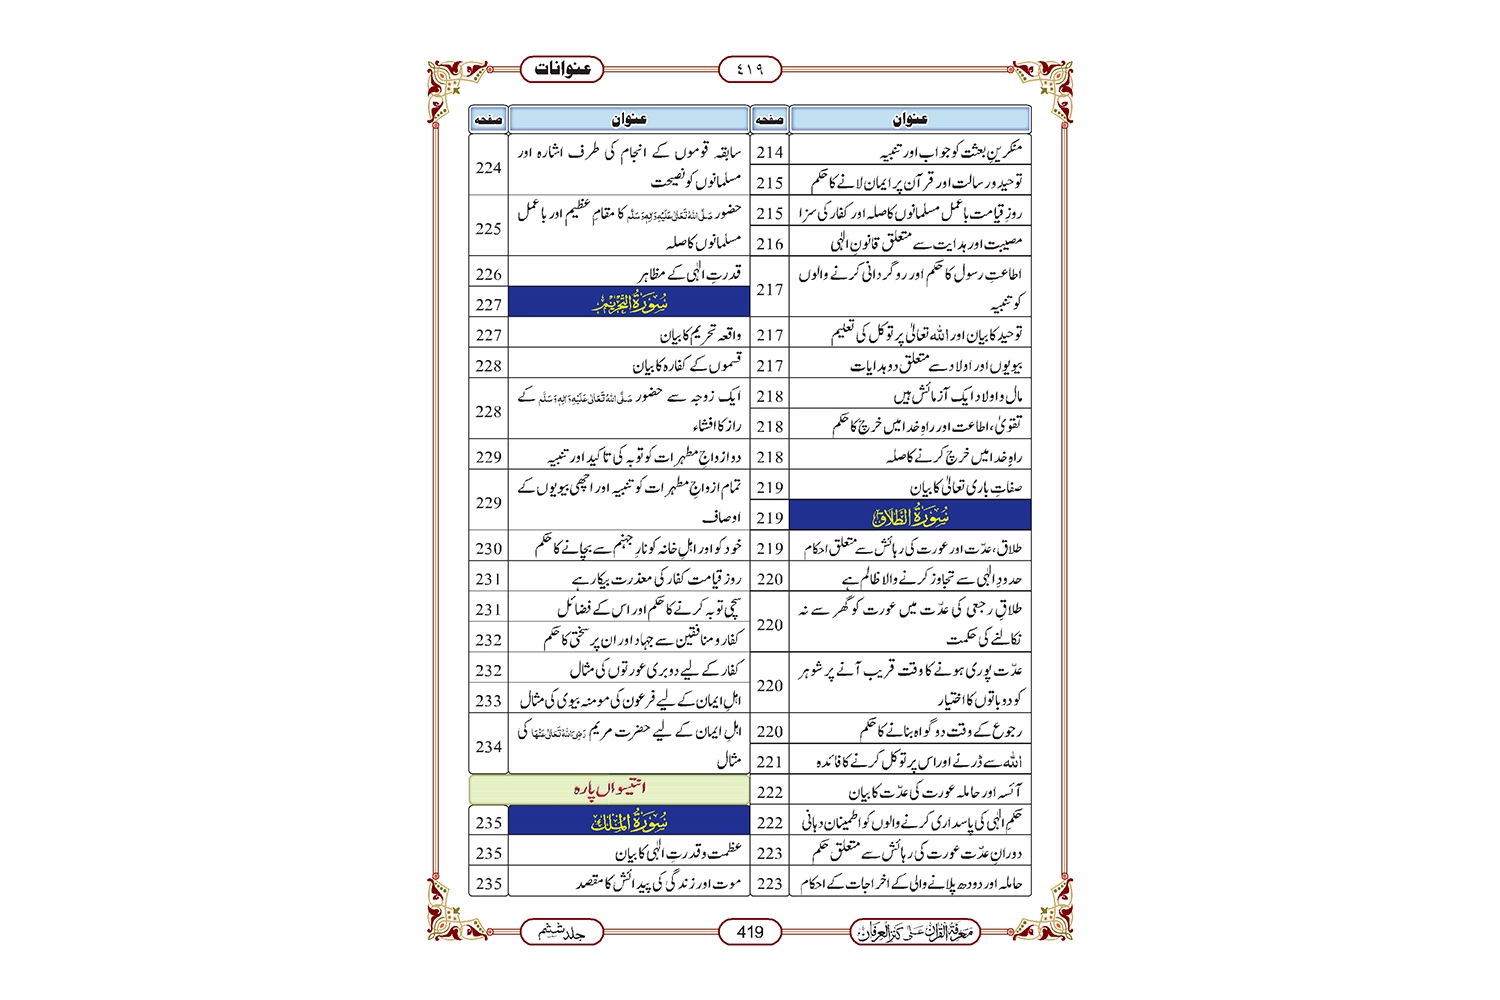 عنوانات
٤١٩
عنوان صفحه
منکرینِ بعثت کو جواب اور تنبیہ 214
توحید و رسالت اور قرآن پر ایمان لانے کا حکم 215
روزِ قیامت باعمل مسلمانوں کا صلہ اور کفار کی سزا 215
مصیبت اور ہدایت سے متعلق قانونِ الٰہی 216
اطاعتِ رسول کا حکم اور روگردانی کرنے والوں
کو تنبیہ 217
توحید کا بیان اور اللہ تعالیٰ پر توکل کی تعلیم 217
بیویوں اور اولاد سے متعلق دو ہدایات 217
مال و اولاد ایک آزمائش ہیں 218
تقویٰ، اطاعت اور راہِ خدا میں خرچ کا حکم 218
راہِ خدا میں خرچ کرنے کا صلہ 218
صفاتِ باری تعالیٰ کا بیان 219
سُوْرَةُ الطَّلَاق 219
طلاق، عدّت اور عورت کی رہائش سے متعلق احکام 219
حدودِ الٰہی سے تجاوز کرنے والا ظالم ہے 220
طلاقِ رجعی کی عدّت میں عورت کو گھر سے نہ
نکالنے کی حکمت 220
عدّت پوری ہونے کا وقت قریب آنے پر شوہر
کو دو باتوں کا اختیار 220
رجوع کے وقت دو گواہ بنانے کا حکم 220
اللہ سے ڈرنے اور اس پر توکل کرنے کا فائدہ 221
آئسہ اور حاملہ عورت کی عدّت کا بیان 222
حکمِ الٰہی کی پاسداری کرنے والوں کو اطمینان دہانی 222
دورانِ عدّت عورت کی رہائش سے متعلق حکم 223
حاملہ اور دودھ پلانے والی کے اخراجات کے احکام 223
عنوان صفحه
سابقہ قوموں کے انجام کی طرف اشارہ اور
مسلمانوں کو نصیحت 224
حضور صَلَّی اللهُ تَعَالٰی عَلَیْهِ وَاٰلِهٖ وَسَلَّم کا مقامِ عظیم اور باعمل
مسلمانوں کا صلہ 225
قدرتِ الٰہی کے مظاہر 226
سُوْرَةُ التَّحْرِيْم 227
واقعہ تحریم کا بیان 227
قسموں کے کفارہ کا بیان 228
ایک زوجہ سے حضور صَلَّی اللهُ تَعَالٰی عَلَیْهِ وَاٰلِهٖ وَسَلَّم کے
راز کا افشاء 228
دو ازواجِ مطہرات کو توبہ کی تاکید اور تنبیہ 229
تمام ازواجِ مطہرات کو تنبیہ اور اچھی بیویوں کے
اوصاف 229
خود کو اور اہلِ خانہ کو نارِ جہنم سے بچانے کا حکم 230
روزِ قیامت کفار کی معذرت بیکار ہے 231
سچی توبہ کرنے کا حکم اور اس کے فضائل 231
کفار و منافقین سے جہاد اور ان پر سختی کا حکم 232
کفار کے لیے دو بری عورتوں کی مثال 232
اہلِ ایمان کے لیے فرعون کی مومنہ بیوی کی مثال 233
اہلِ ایمان کے لیے حضرت مریم رَضِیَ اللهُ تَعَالٰی عَنْهَا کی
مثال 234
انتیسواں پارہ
سُوْرَةُ الْمُلْك 235
عظمت و قدرتِ الٰہی کا بیان 235
موت اور زندگی کی پیدائش کا مقصد 235
معرفة القرآن علٰی كنز العرفان
419
جلد ششم